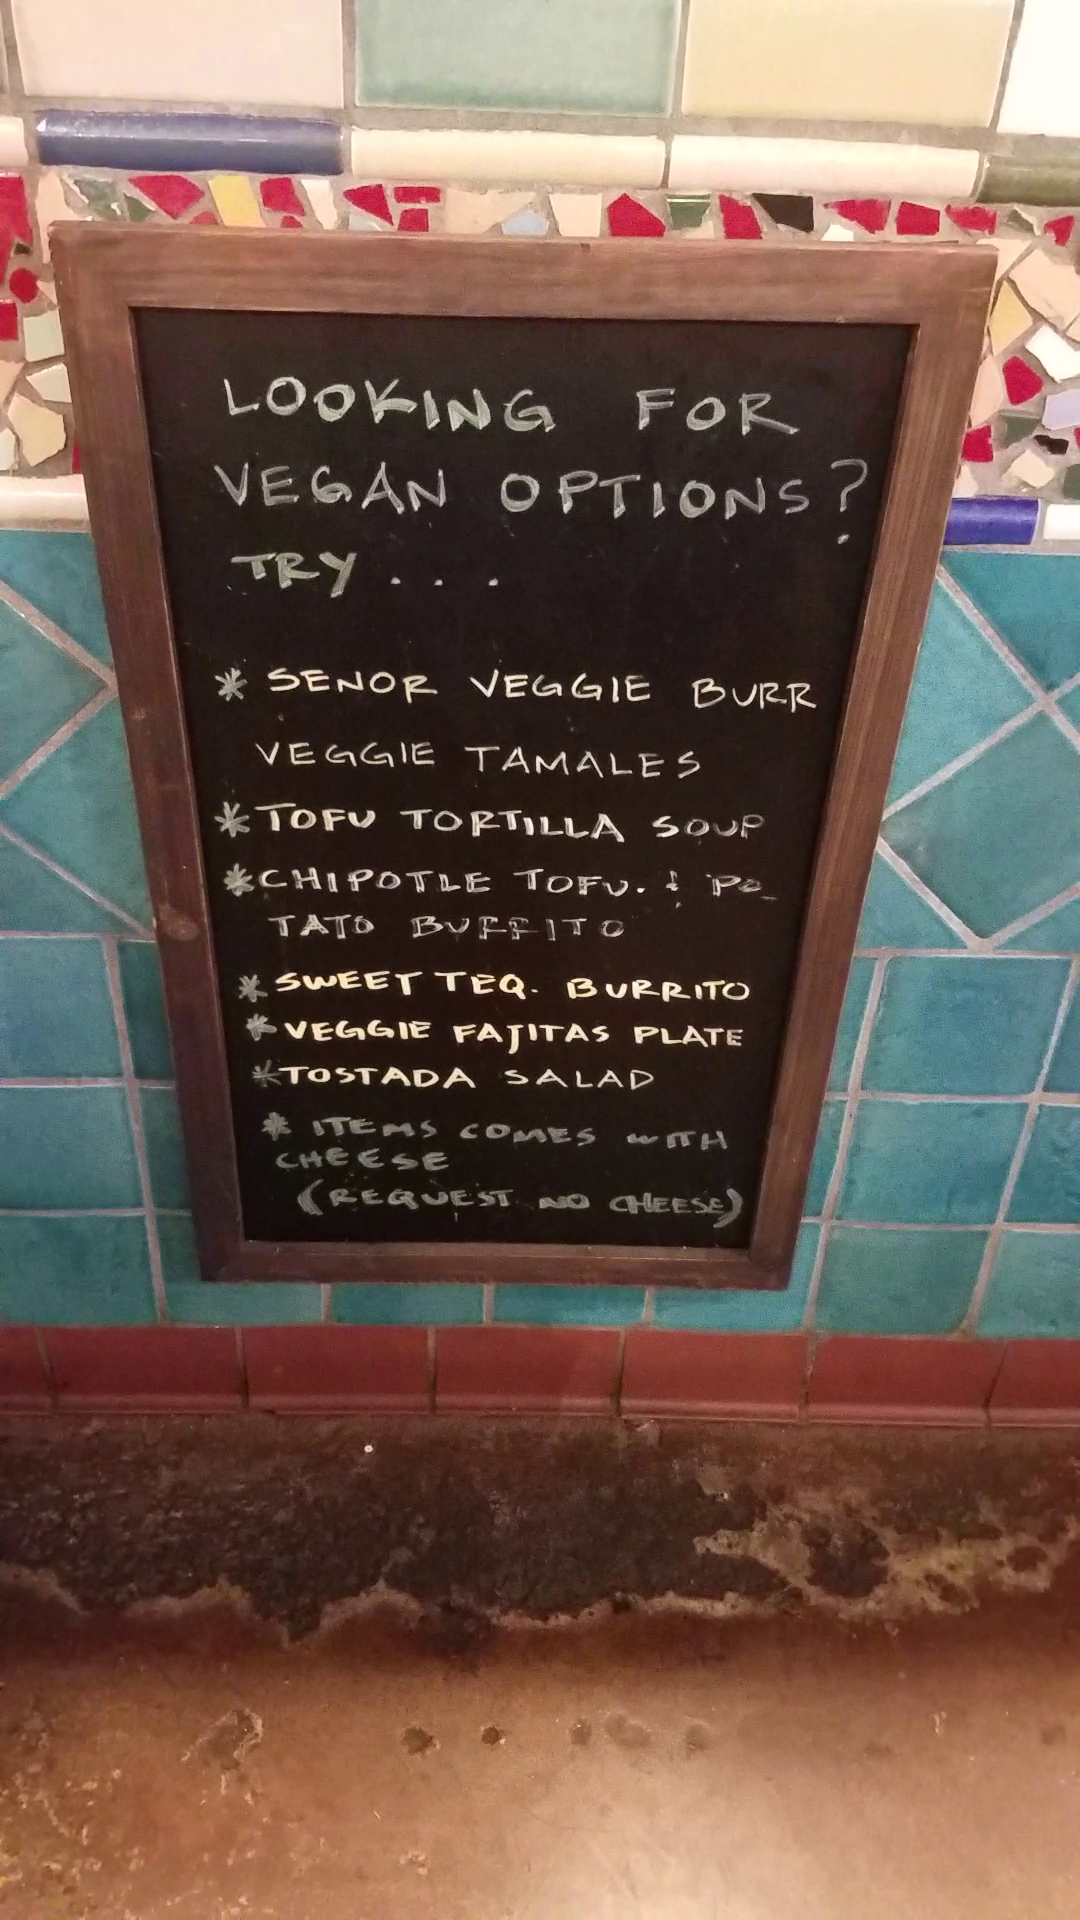 LOOKING FOR
VEGAN OPTIONS?
TRY...
* SENOR VEGGIE BURR
VEGGIE TAMALES
* TOFU TORTILLA SOUP
* CHIPOTLE TOFU. & PO_
TATO BURRITO
* SWEET TEQ. BURRITO
* VEGGIE FAJITAS PLATE
* TOSTADA SALAD
* ITEMS COMES WITH
CHEESE
(REQUEST NO CHEESE)